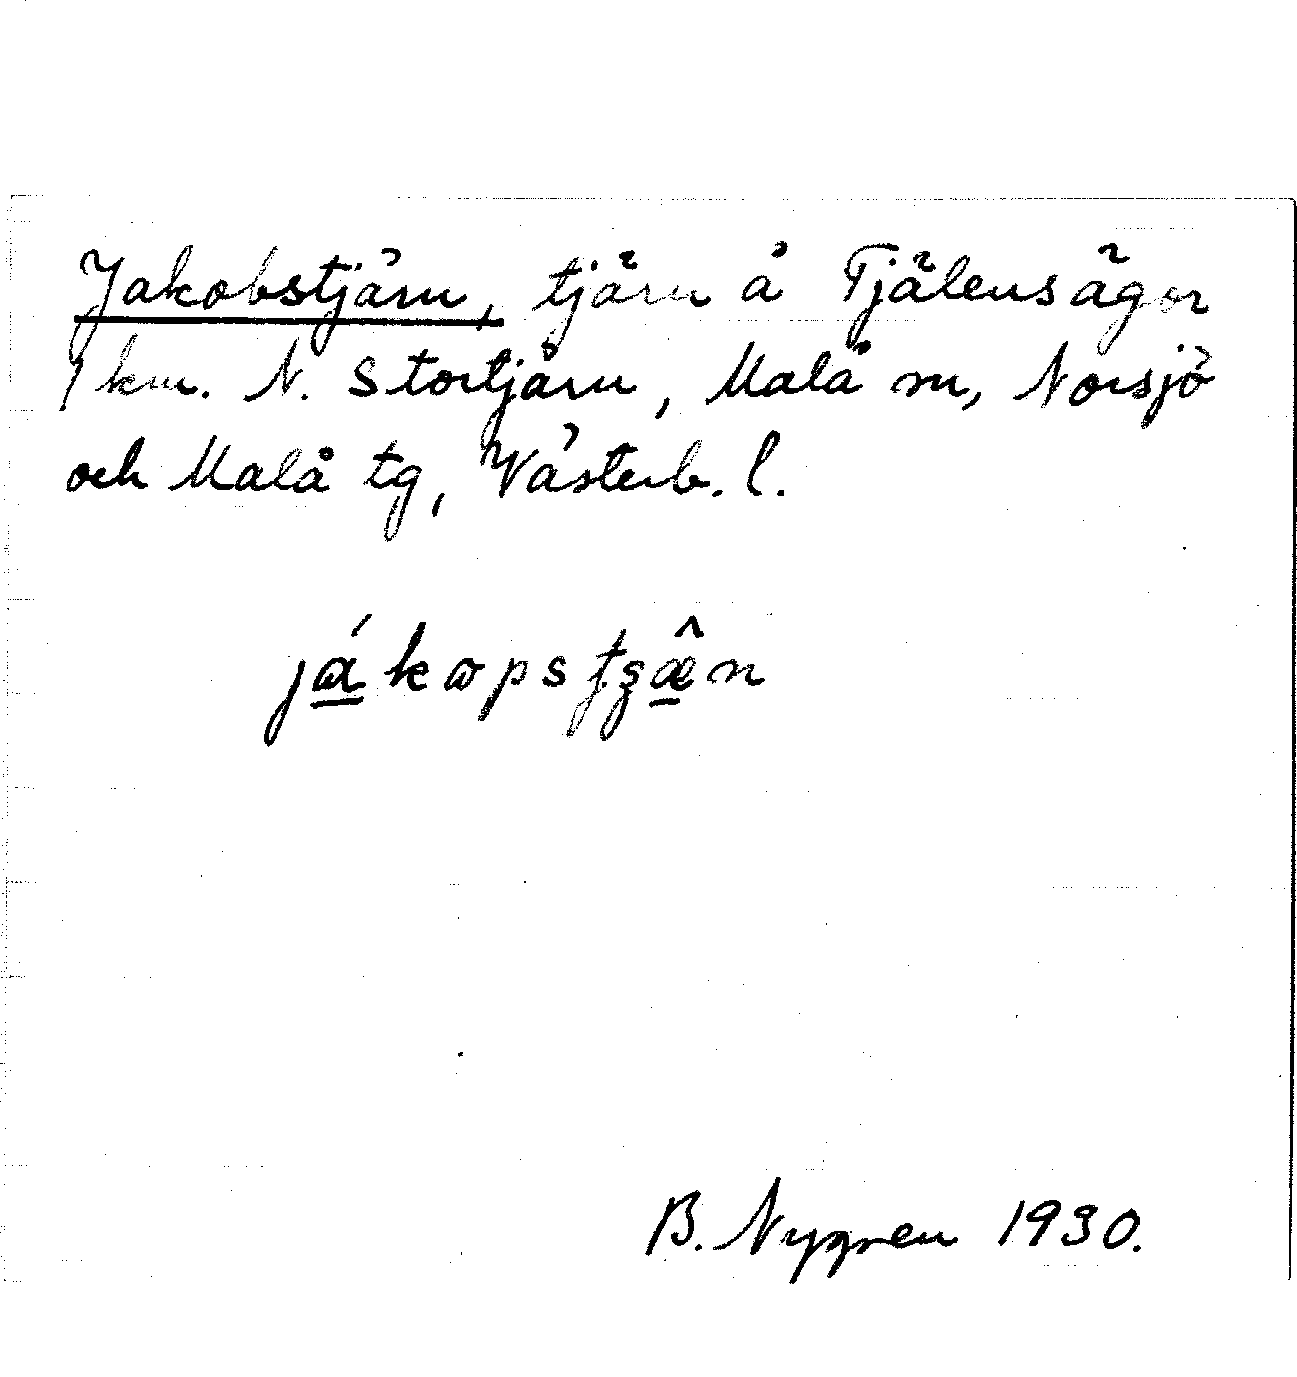 Jakobstjärn, tjärn å Tjälens ägor
1 km. N. Stortjärn, Malå sn, Norsjö
och Malå tg, Västerb. l.
já̱kɷpsʈʂæ̱̂n
B. Nygren 1930.